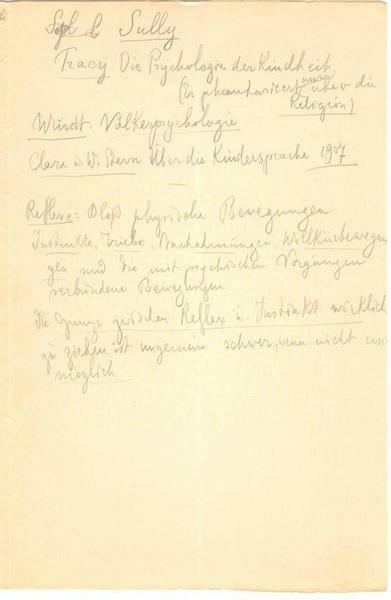 Sully
Tracy Die Psychologie der Kindheit
(Er phantasiert nur über die
Religion)
Wundt. Völkerpsychologie
Clara u. W. Stern Über die Kindersprache 1907.
Reflexe = Bloß physische Bewegungen
Instinkte, Triebe, Nachahmungen, Willkürbewegun
gen sind die mit psychischen Vorgängen
verbundene Bewegungen
Die Grenze zwischen Reflex u. Instinkt wirklich
zu ziehen ist ungemein schwer, wenn nicht un-
möglich